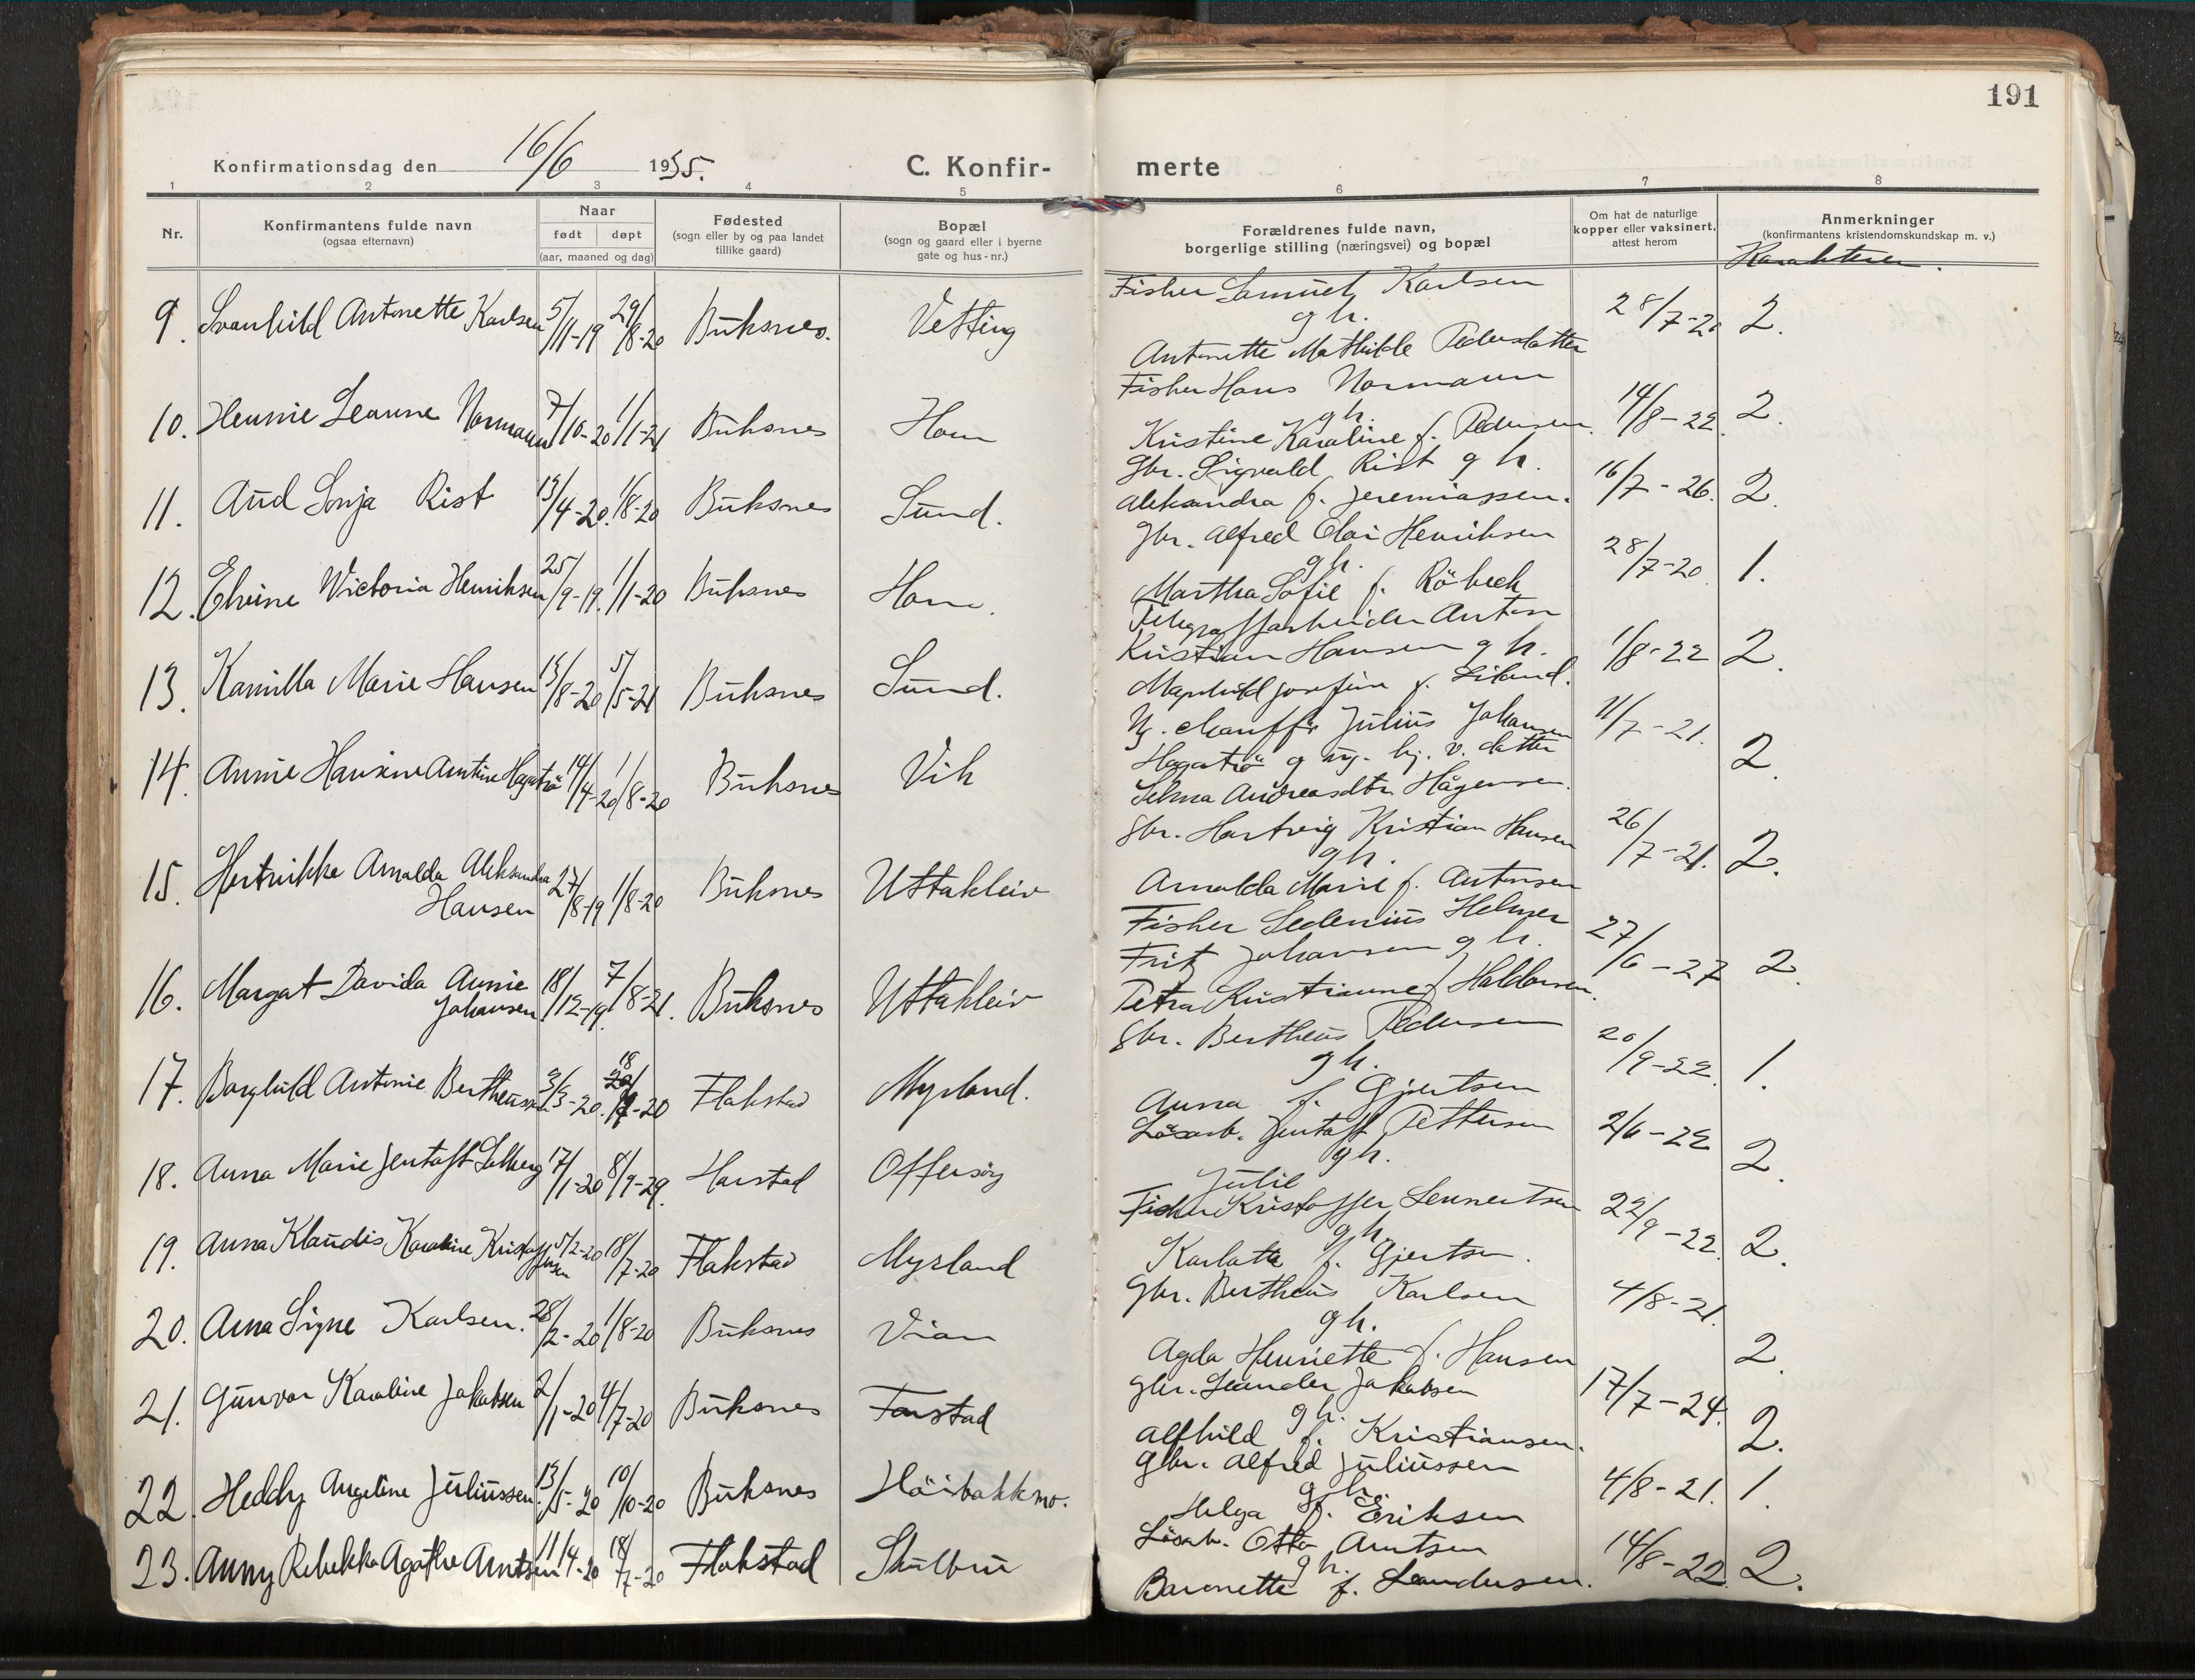 191
Konfirmationsdag den 16/6 1935.
C. Konfir-
merte
1 2 3 4 5 6 7 8
Nr.
Konfirmantens fulde navn
(ogsaa efternavn)
Naar
født døpt
(aar, maaned og dag)
Fødested
(sogn eller by og paa landet
tillike gaard)
Bopæl
(sogn og gaard eller i byerne
gate og hus-nr.)
Forældrenes fulde navn,
borgerlige stilling (næringsvei) og bopæl
Om hat de naturlige
kopper eller vaksinert,
attest herom
Anmerkninger
(konfirmantens kristendomskundskap m. v.)
Karakterer.
9. Svanhild Antonette Karlsen 5/11-19 29/8-20 Buksnes. Vetting
Fisker Samuel Karlsen
g h.
Antonette Mathilde Pedersdatter
28/7-20 2.
10. Hennie Leanne Normann 7/10-20 1/1-21 Buksnes Horn
Fisker Hans Normann
g h.
Kristine Karoline f. Pedersen.
14/8-22. 2.
11. Aud Sonja Rist 13/4-20. 1/8-20 Buksnes Sund.
Gbr. Sigvald Rist g h.
Aleksandra f. Jeremiassen.
16/7-26. 2.
12. Elvine Victoria Henriksen 25/9-19. 1/1-20 Buksnes Horn.
Gbr. Alfred Olai Henriksen
g h.
Martha Sofie f. Röbeck
28/7-20. 1.
13. Kamilla Marie Hansen 13/8-20 5/5-21 Buksnes Sund.
Telegrafarbeider Anton
Kristian Hansen g h.
Magnhild Josefine f. Liland.
1/8-22 2.
14. Annie Hansine Antine Hagatrö 14/4-20 1/8-20 Buksnes Vik
Ug. chauffør Julius Johansen
Hagatrö g ug. hj. v. datter
Selma Andreasdtr. Hågensen.
11/7-21. 2.
15. Hertvikke Arnalda Aleksandra
Hansen 27/8-19 1/8-20 Buksnes Uttakleiv
Gbr. Hartvig Kristian Hansen
g h.
Arnalda Marie f. Antonsen
26/7-21. 2.
16. Margot Davida Annie
Johansen 18/12-19. 7/8-21. Buksnes Uttakleiv
Fisker Sedenius Helmer
Fritz Johansen g h.
Petra Kristianne f Haldorsen.
27/6-27 2.
17. Borghild Antonie Bertheussen 3/3-20. 18/7-20 Flakstad Myrland.
Gbr. Bertheus Pedersen
g h.
Anna f. Gjertsen
20/9-22. 1.
18. Anna Marie Jentoft Solberg 17/1-20 8/9-29. Harstad Offersøy
Løsarb. Jentoft Pettersen
g h.
Julie
2/6-22 2.
19. Anna Klaudis Karoline Kristoffersen 5/2-20 18/7-20 Flakstad Myrland
Fisker Kristoffer Lennertsen
g h.
Karlotte f. Gjertsen.
22/9-22. 2.
20. Arna Signe Karlsen. 28/2-20 1/8-20 Buksnes Vian
Gbr. Bertheus Karlsen
g h.
Agda Henriette f. Hansen
4/8-21. 2.
21. Gunvor Karoline Jakobsen 2/1-20 4/7-20 Buksnes Farstad
Gbr. Leander Jakobsen
g h.
Alfhild f. Kristiansen.
17/7-24. 2.
22. Heddy Angeline Juliussen. 13/5-20 10/10-20 Buksnes Höibakkmo.
Gbr. Alfred Juliussen
g h.
Helga f. Eriksen
4/8-21. 1.
23. Anny Rebekka Agathe Arntsen 11/4-20 18/7-20 Flakstad Skulbru
Løsarb. Otto Arntsen
g h.
Baronette f. Leandersen.
14/8-22. 2.